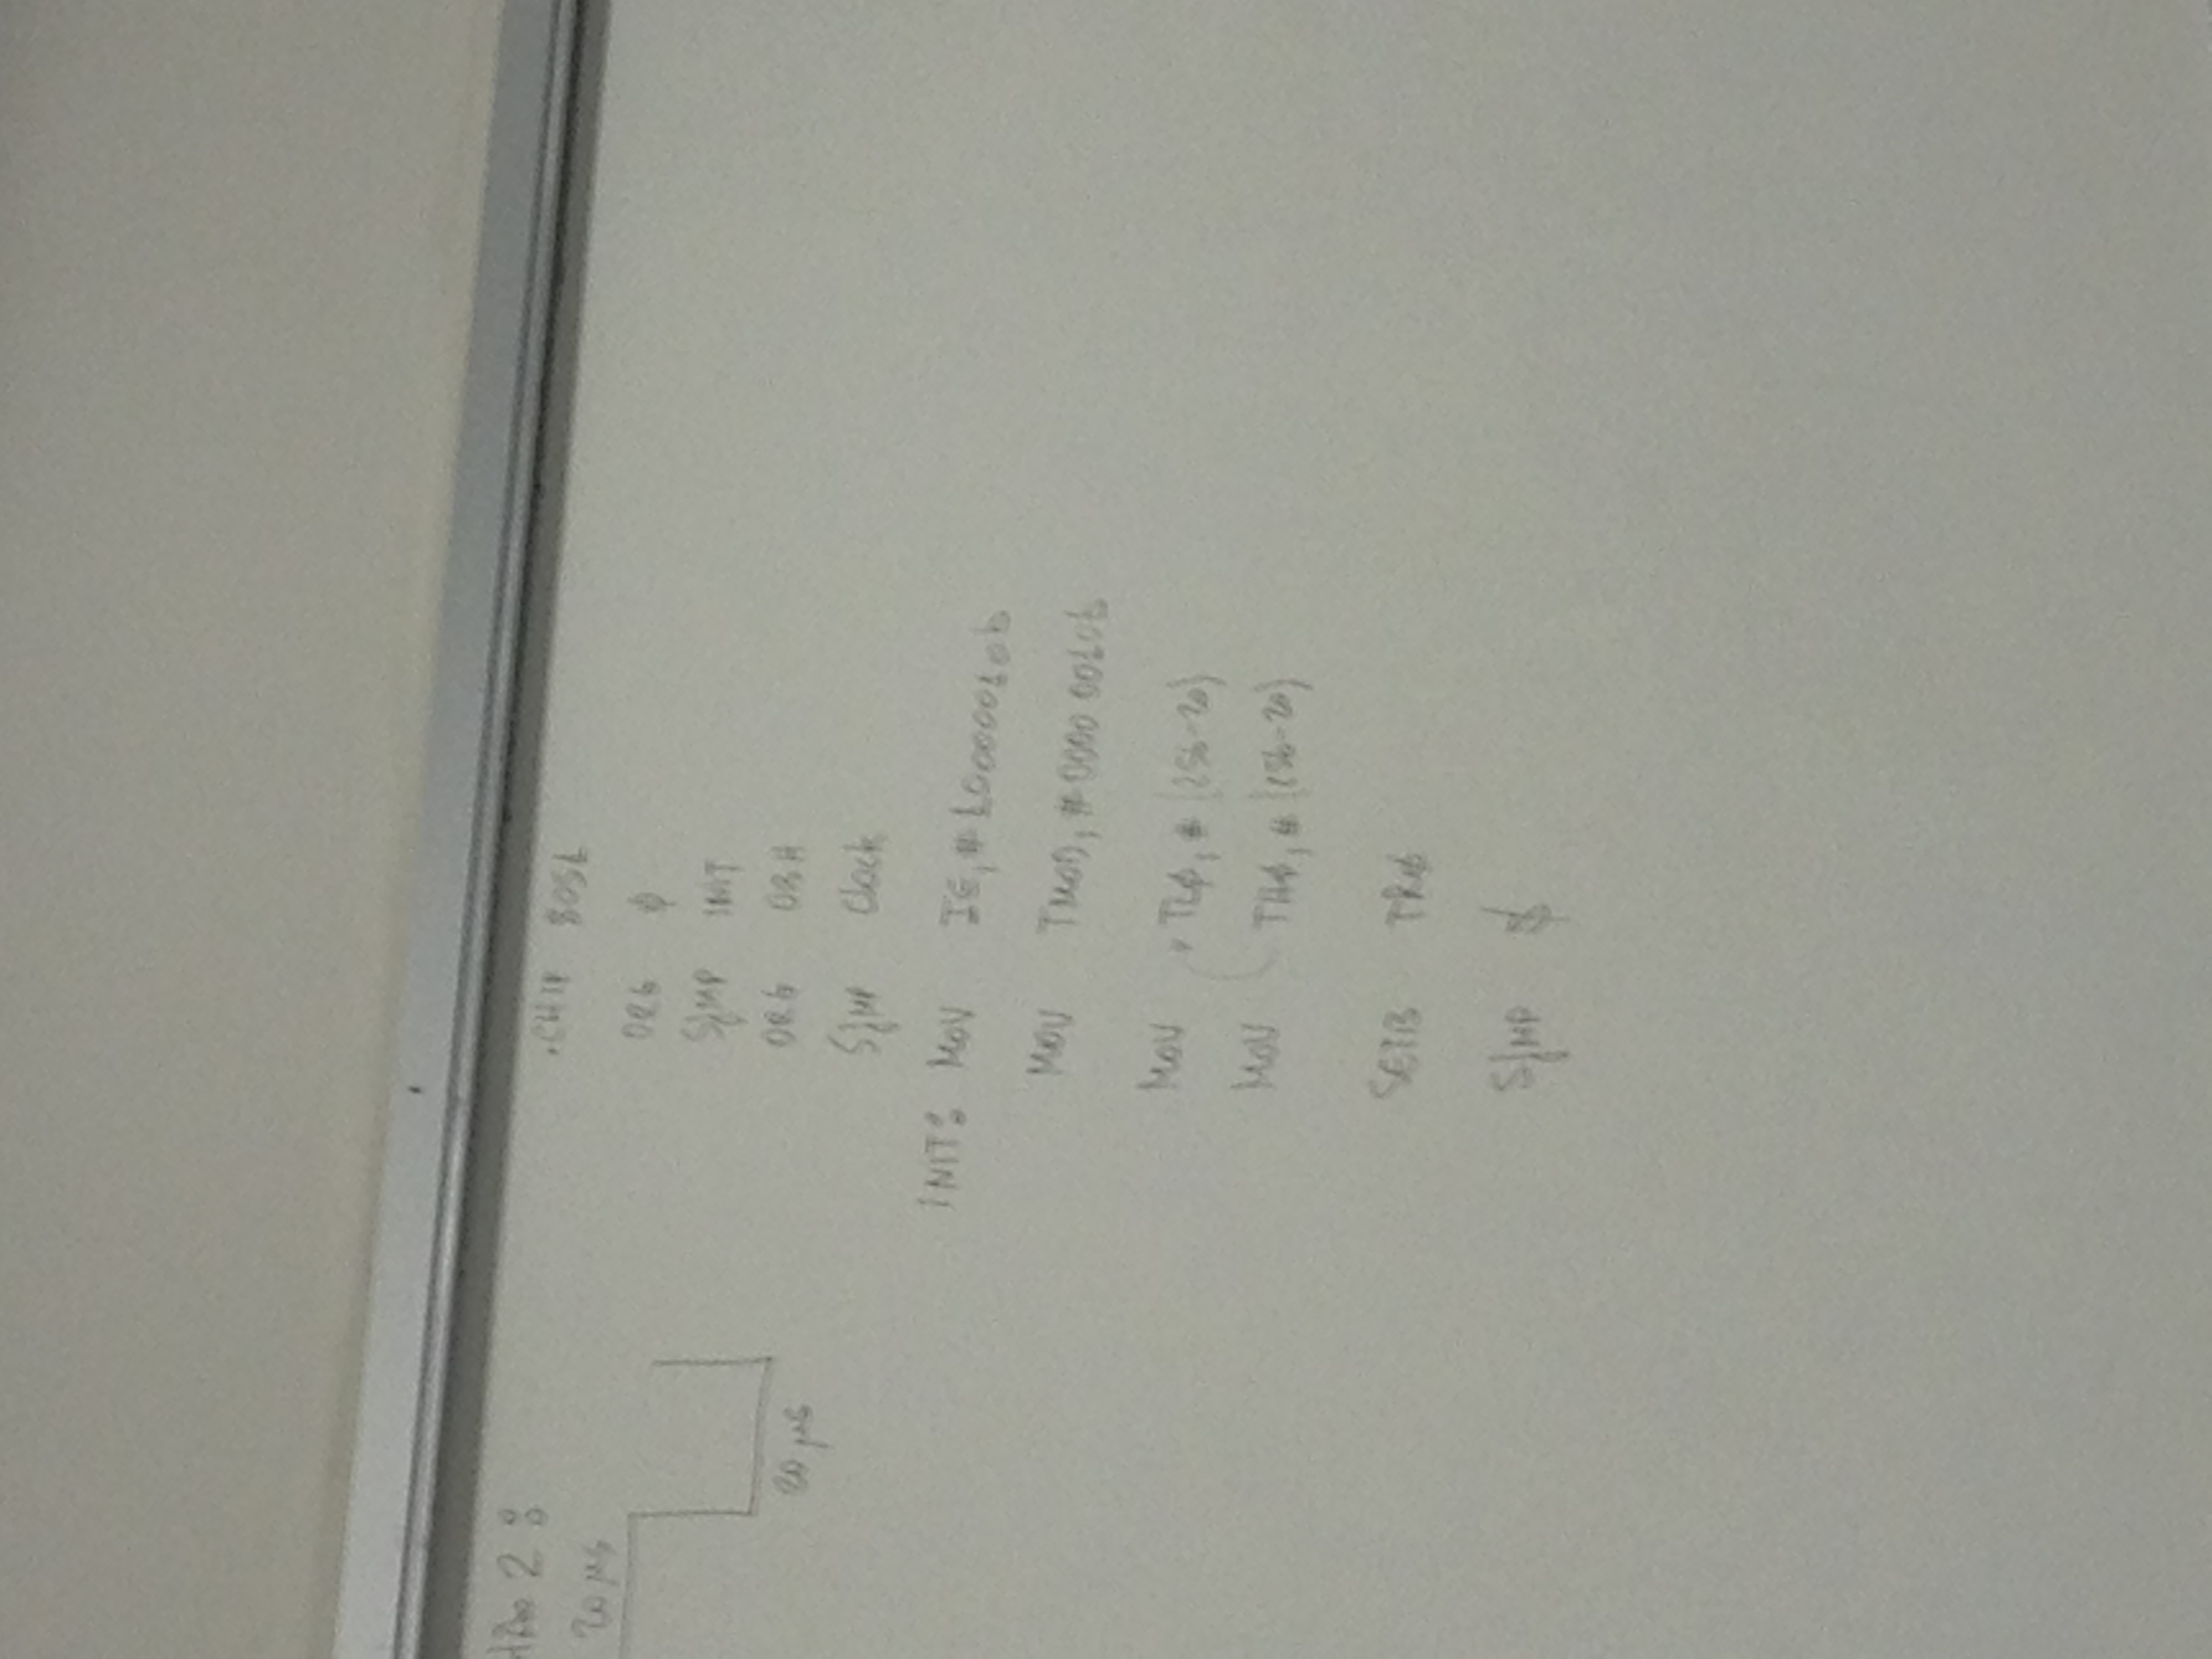 2:
20 μs
20 μs
.CHIP 8051
ORG Ø
SjMP INIT
ORG OBH
SjMP Clock
INIT: MOV IE, #10000010b
MOV TMOD, #0000 0010b
MOV TLØ, # (256-20)
MOV THØ, # (256-20)
SETB TRØ
SjMP $